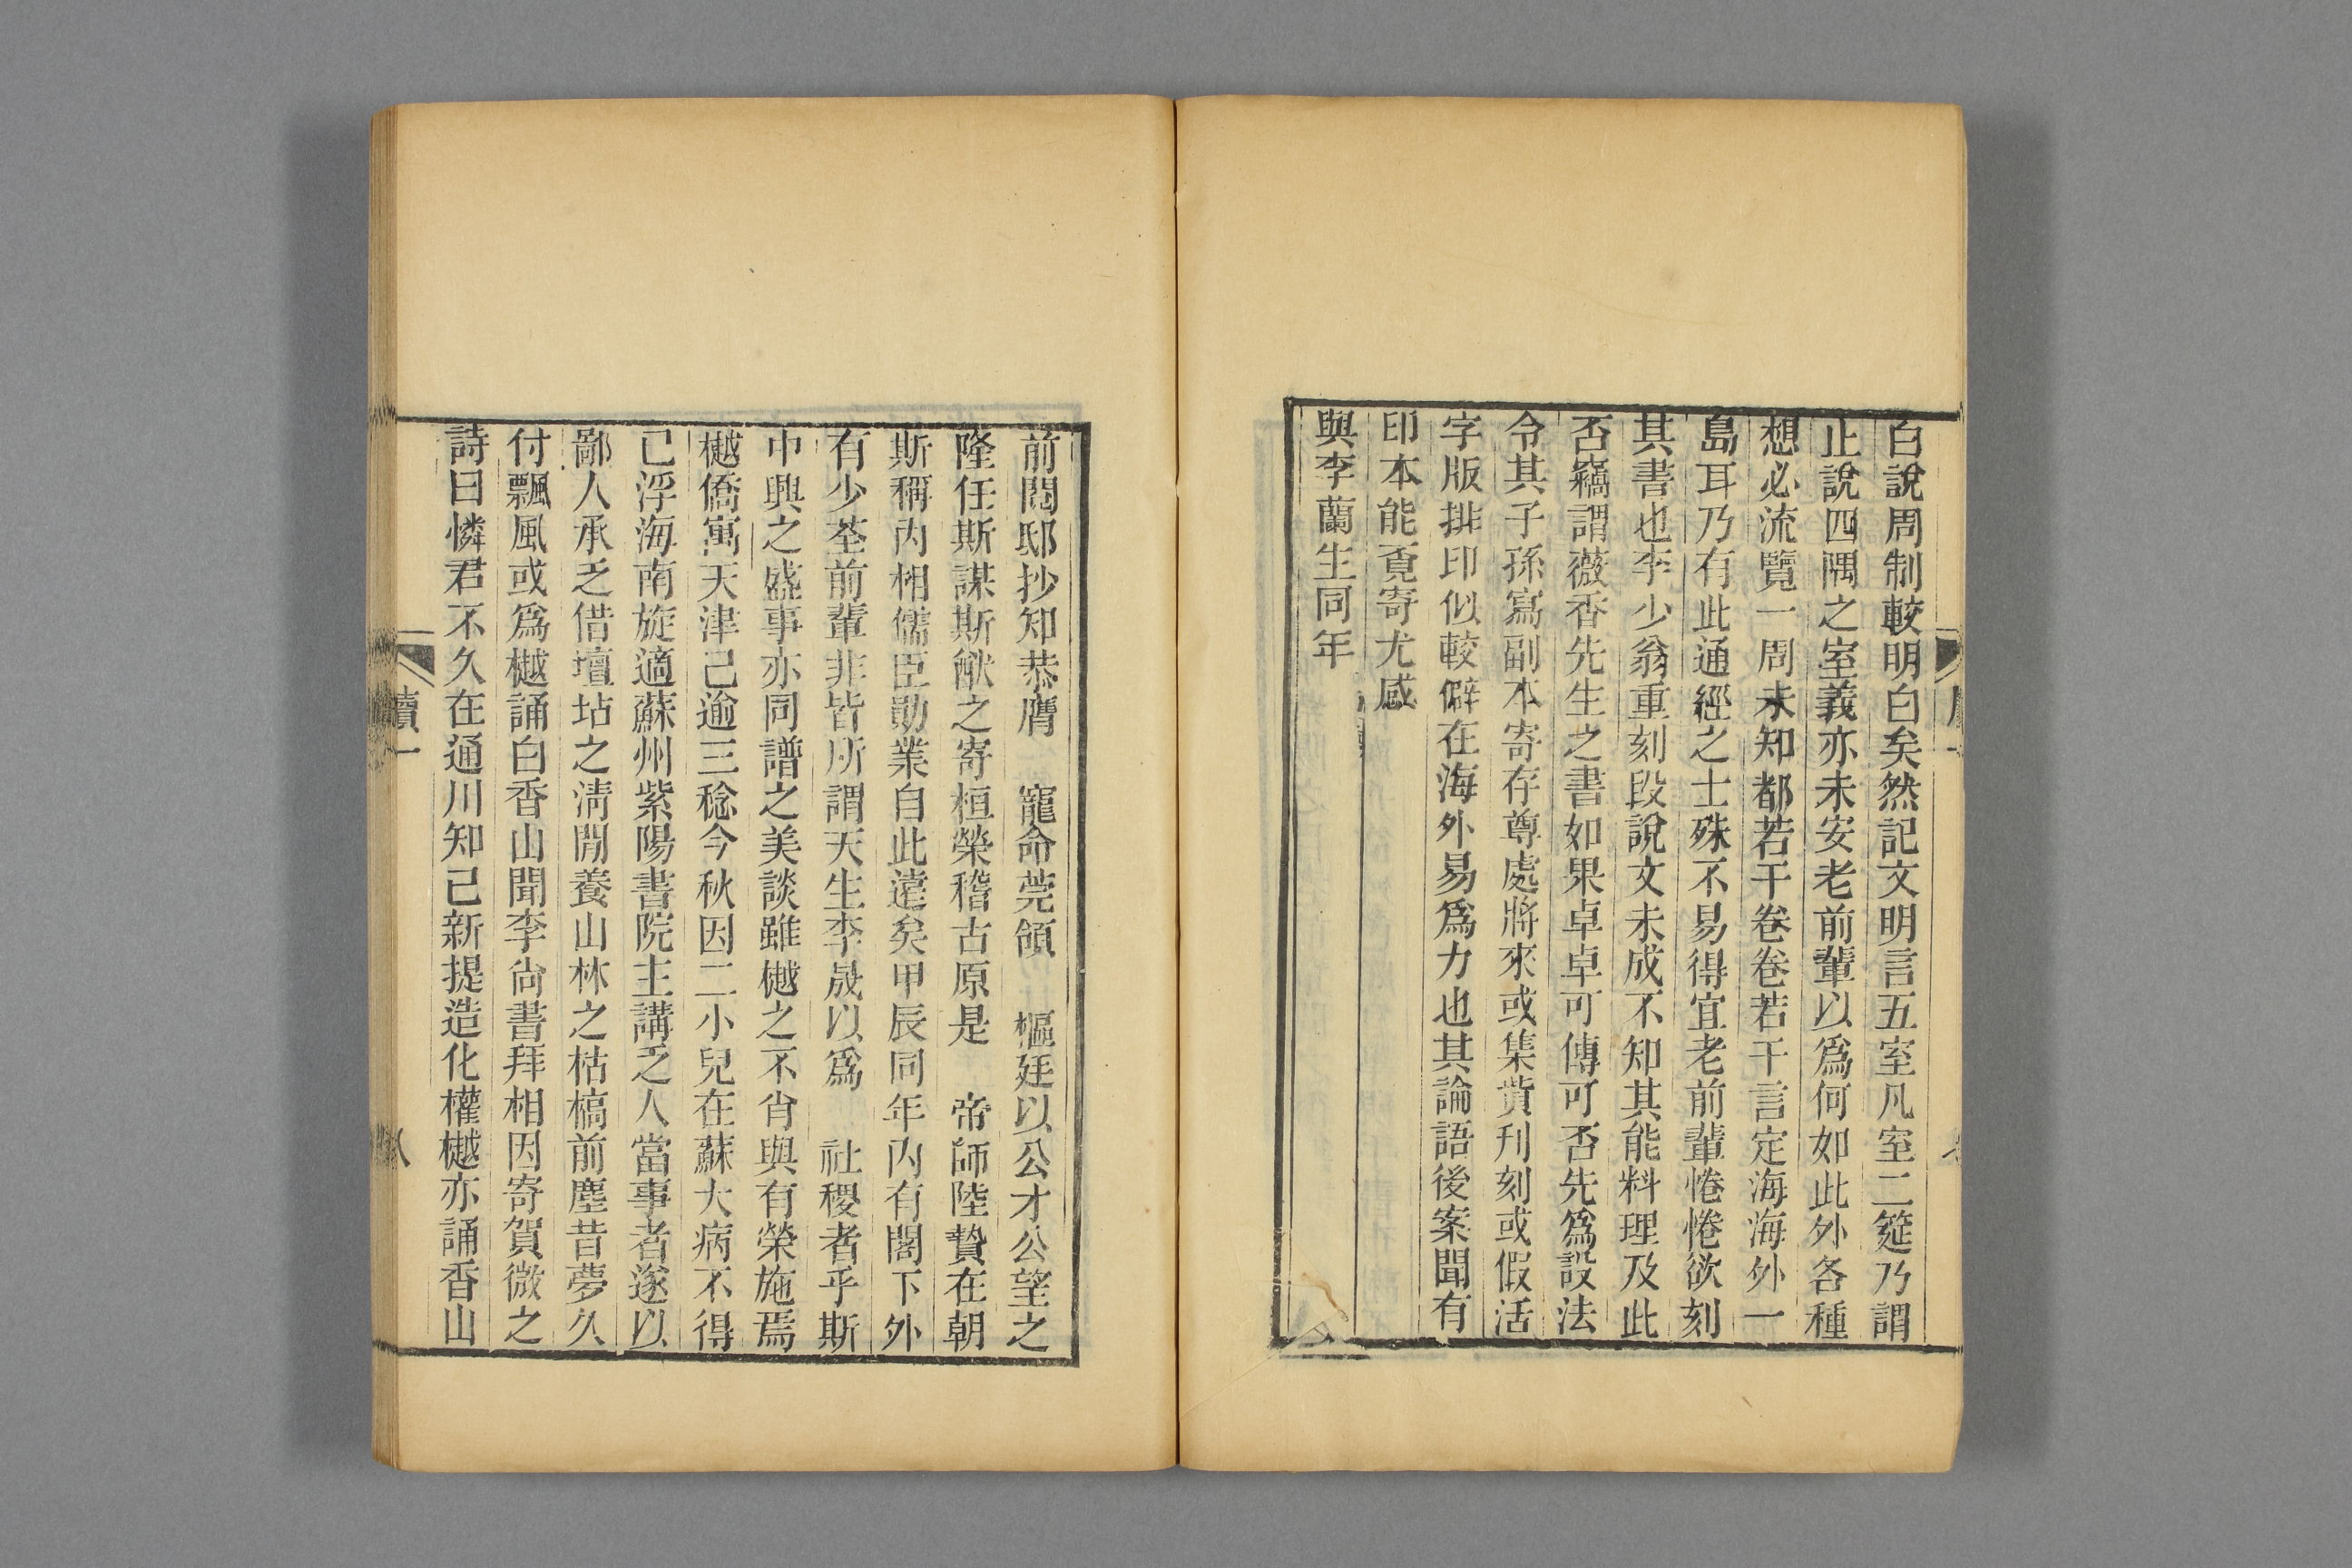 白說周制較明白矣然記文明言五室凡室二筵乃謂
止說四隅之室義亦未安老前輩以爲何如此外各種
想必流覽一周未知都若干卷卷若干言定海海外一
島耳乃有此通經之士殊不易得宜老前輩惓惓欲刻
其書也李少翁重刻段說文未成不知其能料理及此
否竊謂薇香先生之書如果卓卓可傳可否先爲設法
令其子孫寫副本寄存尊處將來或集貲刊刻或假活
字版排印似較僻在海外易爲力也其論語後案聞有
印本能覔寄尤感
與李蘭生同年
前閱邸抄知恭膺　寵命莞領　樞廷以公才公望之
隆任斯謀斯猷之寄桓榮稽古原是　帝師陸贄在朝
斯稱內相儒臣勛業自此遠矣甲辰同年內有閣下外
有少荃前輩非皆所謂天生李晟以爲　社稷者乎斯
中興之盛事亦同譜之美談雖樾之不肖與有榮施焉
樾僑寓天津已逾三稔今秋因二小兒在蘇大病不得
已浮海南旋適蘇州紫陽書院主講乏人當事者遂以
鄙人承乏借壇坫之淸閒養山林之枯槁前塵昔夢久
付飄風或爲樾誦白香山聞李尙書拜相因寄賀微之
詩曰憐君不久在通川知已新提造化權樾亦誦香山
牘一
八